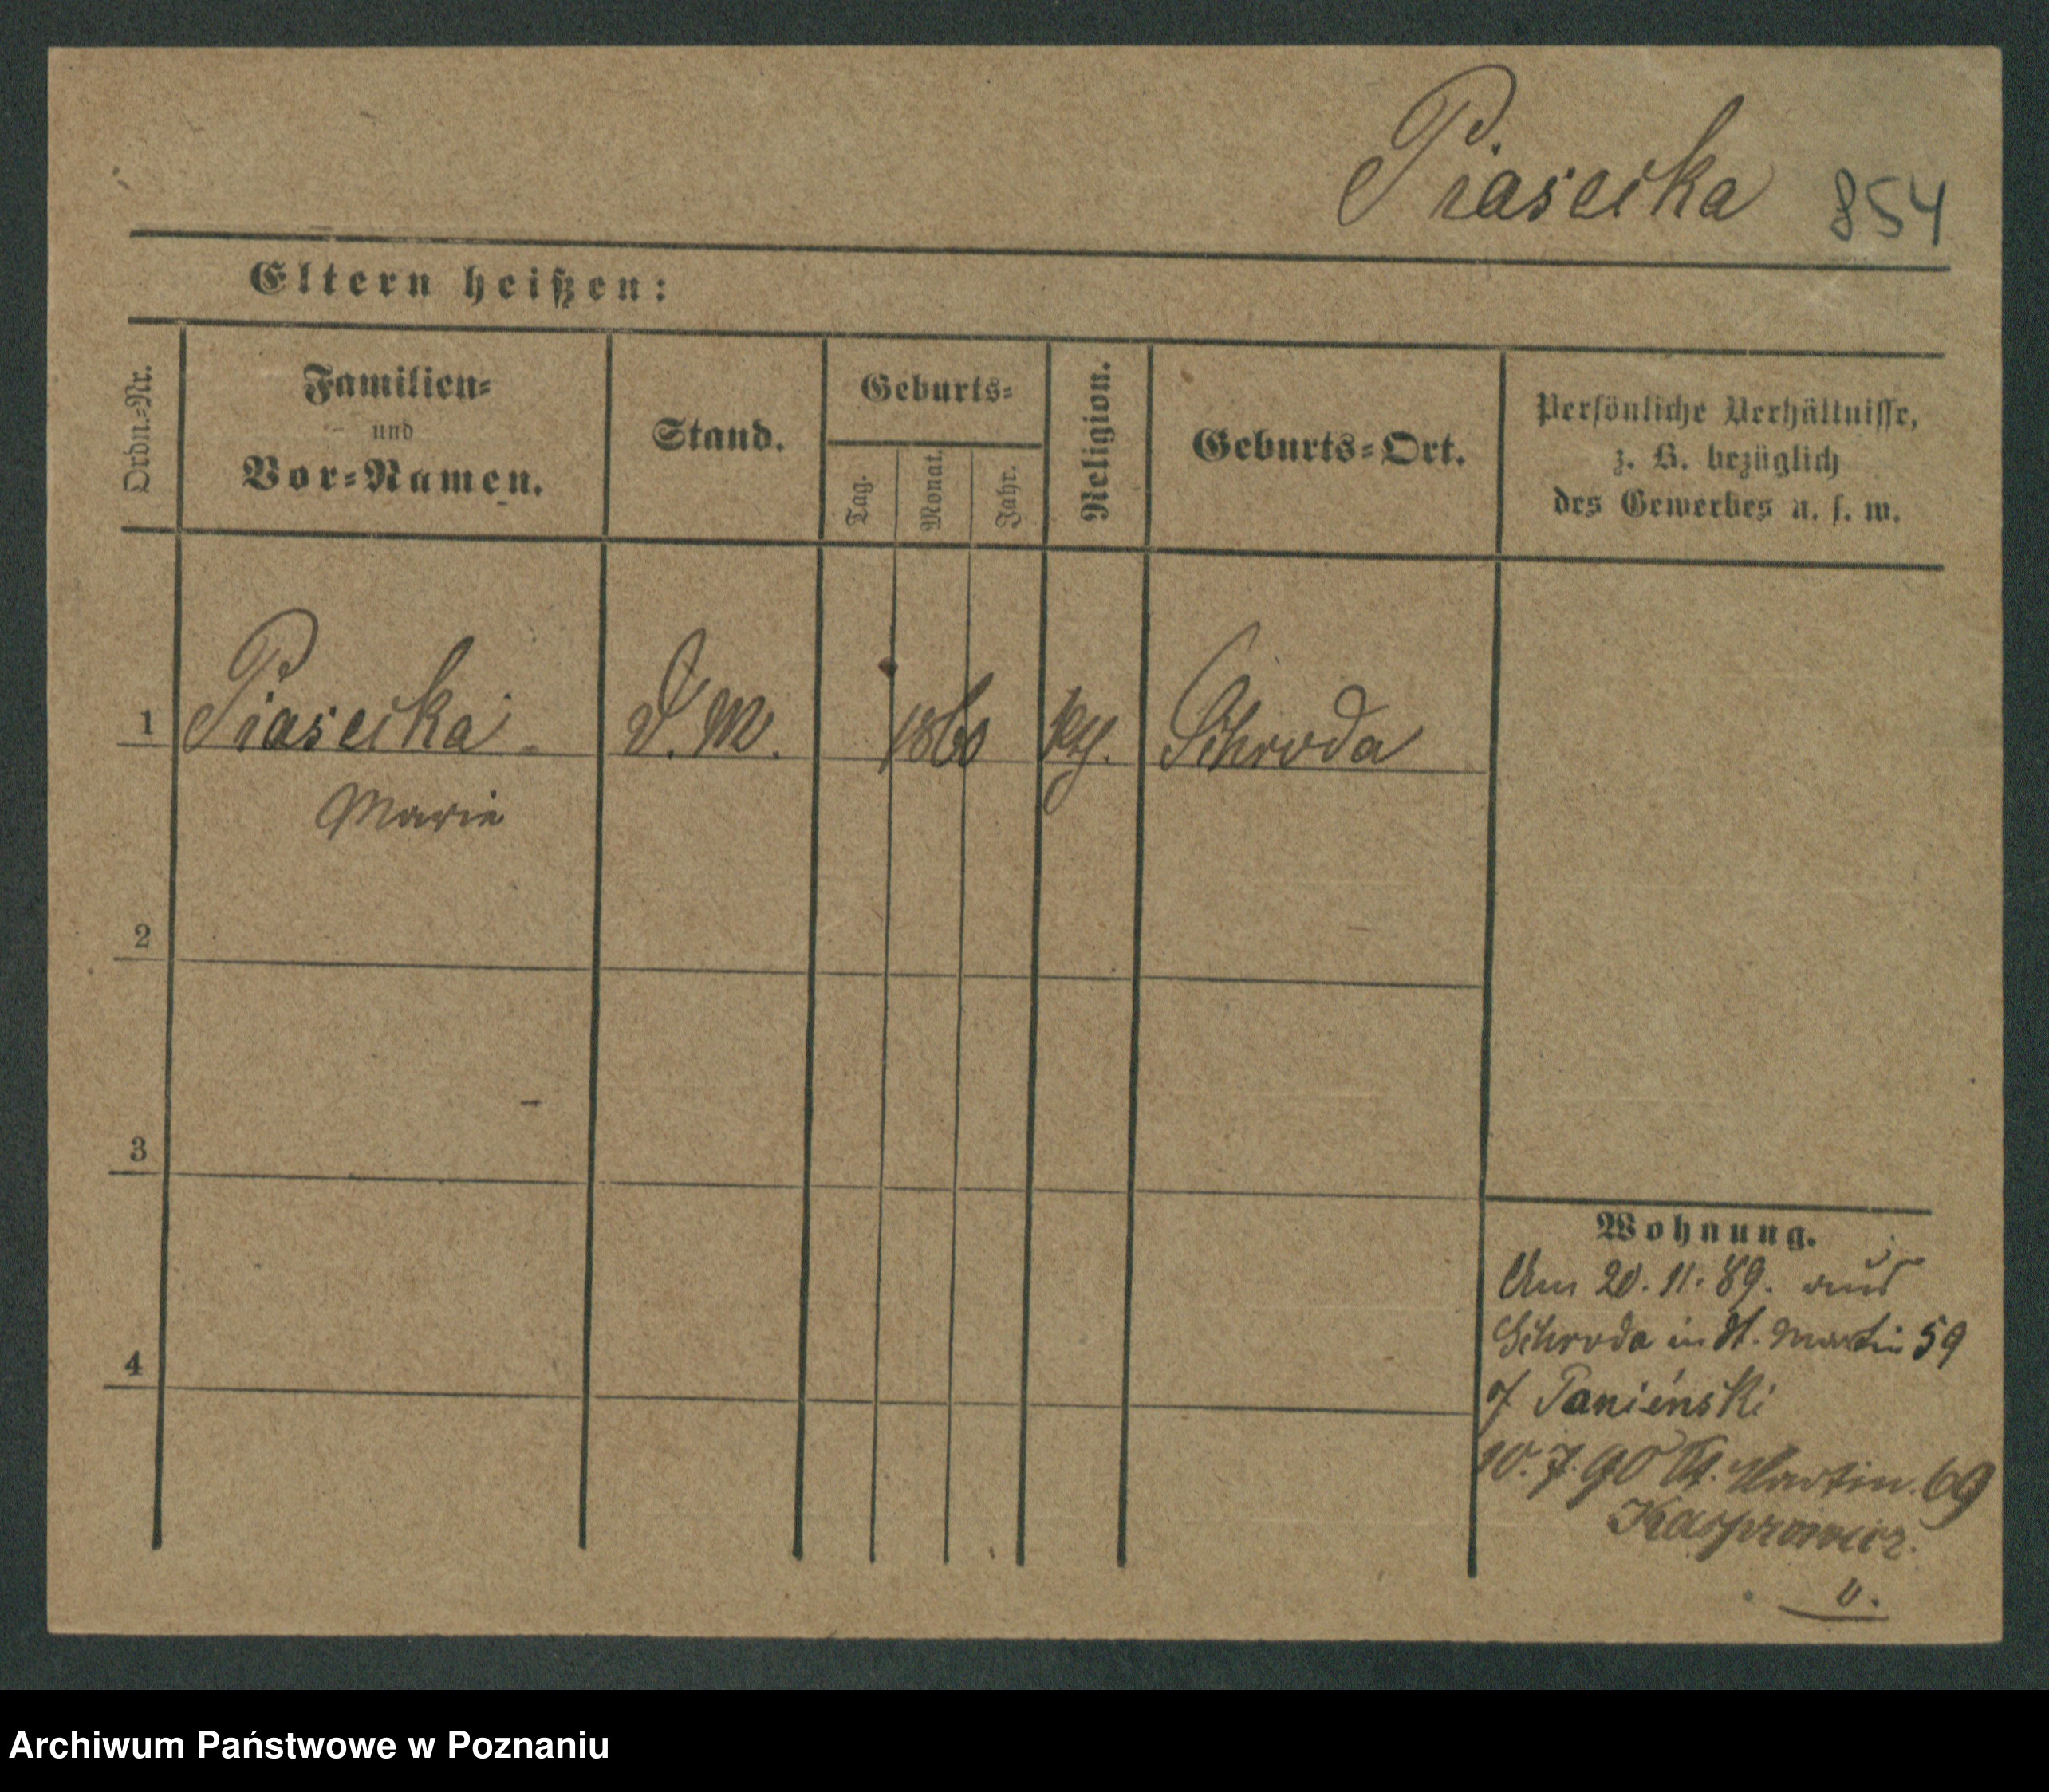 Piasecka 854
Eltern heißen:
Ordn.=Nr.
Familien=
und
Vor=Namen.
Stand.
Geburts=
Tag.
Monat.
Jahr.
Religion.
Geburts=Ort.
Persönliche Verhältnisse,
z. B. bezüglich
des Gewerbes u. s. w.
1 Piasecka D. M. 1860 Schroda
Marie
2
3
4
Wohnung.
Am 20. 11. 89. aus
Schroda in St. Martin 59
Panieński
10. 7. 90 St. Martin. 69
Kasprowicz.
Archiwum Państwowe w Poznaniu